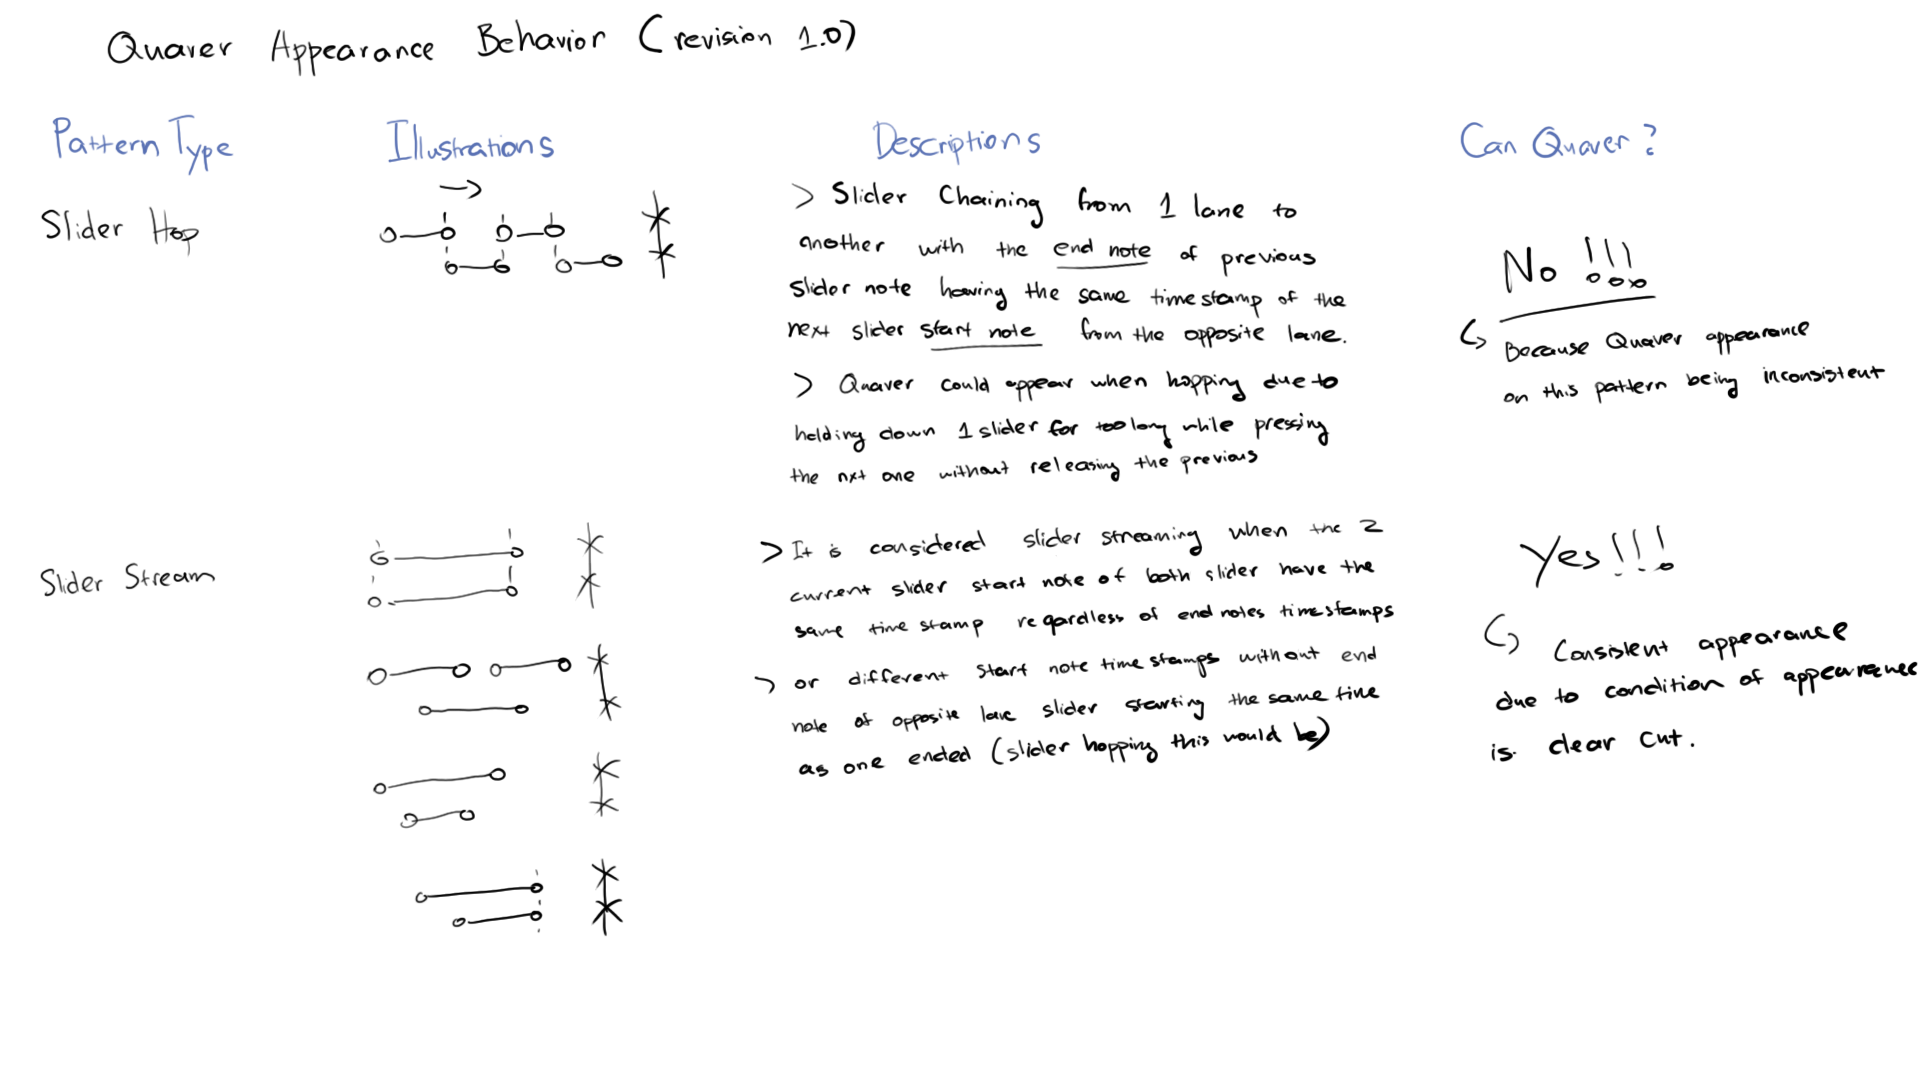 Quaver Appearance Behavior (revision 1.0)
Pattern Type
Illustrations
Descriptions
Can Quaver?
Slider Hop
> Slider Chaining from 1 lane to
another with the end note of previous
Slider note having the same timestamp of the
next slider start note from the opposite lane.
> Quaver could appear when hopping due to
holding down 1 slider for too long while pressing
the nxt one without releasing the previous
No !!!
Because Quaver appearance
on this pattern being inconsistent
Slider Stream
> It is considered slider streaming when the 2
current slider start note of both slider have the
same time stamp regardless of end notes timestamps
> or different start note time stamps without end
note of opposite lane slider starting the same time
as one ended (slider hopping this would be)
Yes!!!
Consistent appearance
due to condition of appearance
is clear cut.